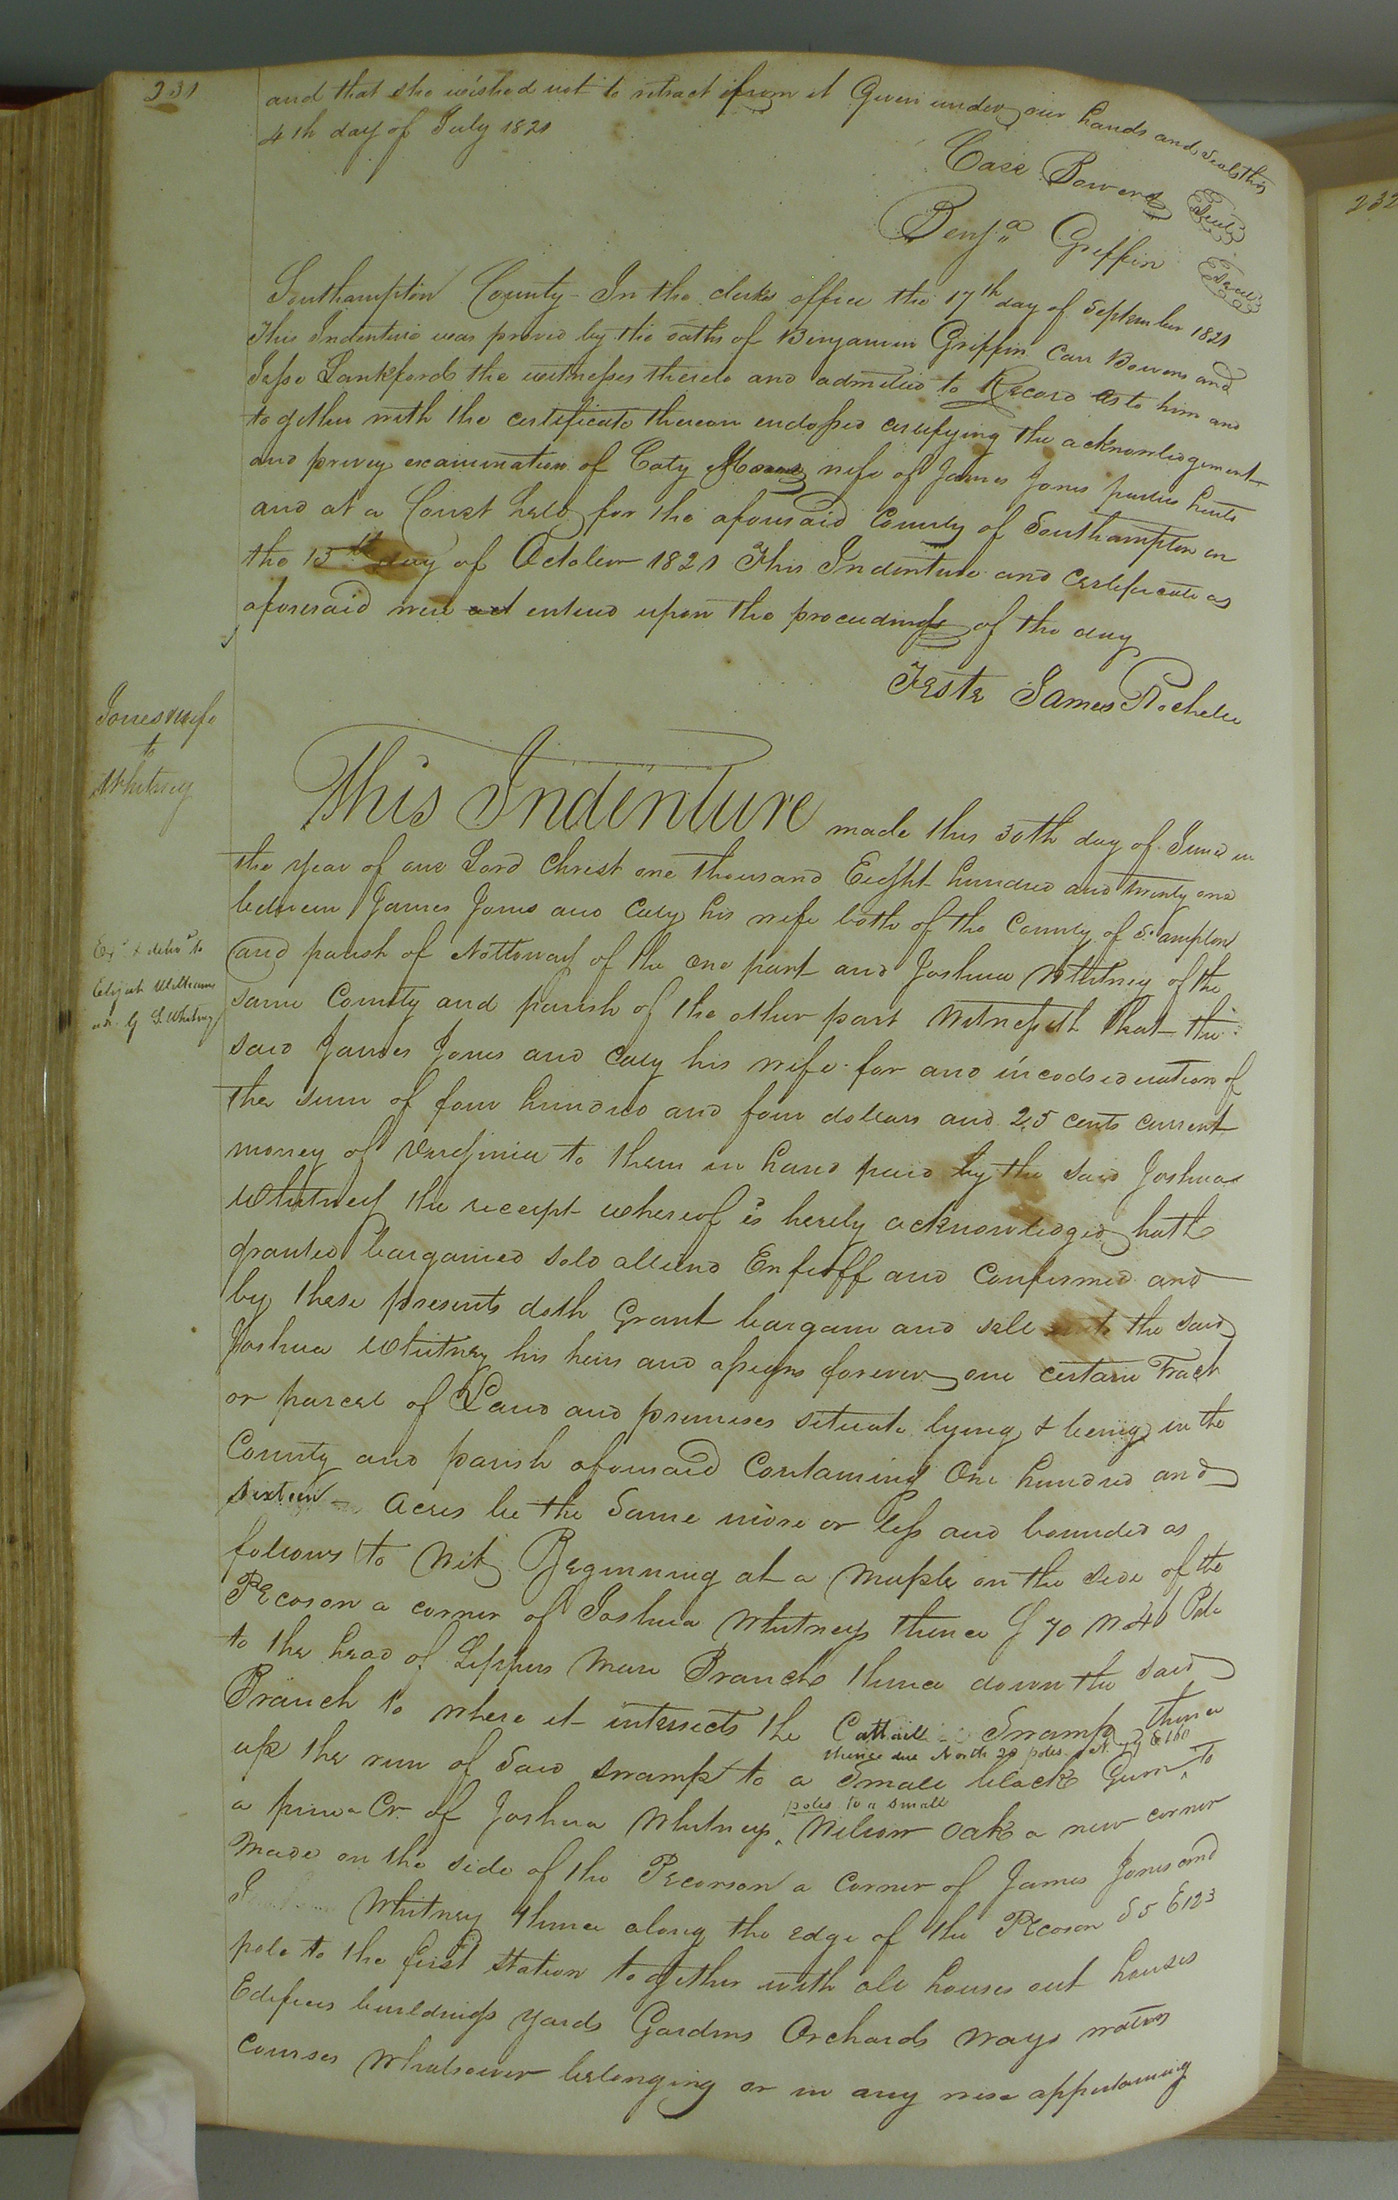 231
and that she wished not to retract from it Given under our hands and seals this
4th day of July 1821
Carr Bowers Seal
Benja Griffin Seal
Southampton County - In the clerks office the 17th day of September 1821
This Indenture was proved by the oaths of Benjamin Griffin Carr Bowers and
Jesse Lankford the witnesses thereto and admitted to Record as to him and
together with the certificate thereon endorsed certifying the acknowledgement
and privey examination of Caty wife of James Jones parties hereto
and at a Court held for the aforesaid County of Southampton on
the 15th day of October 1821 This Indenture and certificate as
aforesaid were entered upon the proceedings of the day
Teste James Rochelle
Jones & wife
to
Whitney
This Indenture made this 30th day of June in
the year of our Lord Christ one thousand Eight hundred and twenty one
between James Jones and Caty his wife both of the County of S.ampton
and parish of Nottoway of the one part and Joshua Whitney of the
Exd & delivd to
Elijah Williams
adr. of J. Whitney
same County and parish of the other part Witnesseth that the
said James Jones and Caty his wife for and in codsideration of
the sum of four hundred and four dollars and 25 cents current
money of Virginia to them in hand paid by the said Joshua
Whitney the receipt whereof is hereby acknowledged hath
granted bargained sold aliend Enfeoff and Confirmed and
by these presents doth Grant bargain and sell unto the said
Joshua Whitney his heirs and assigns forever one certain Tract
or parcel of Land and premises situate lying & being in the
County and parish aforesaid Containing One hundred and
sixteen Acres be the Same more or less and bounded as
follows to Wit Beginning at a Maple on the side of the
PEcoson a corner of Joshua Whitneys thence S 70 W 41 Pole
to the head of Branch thence down the said
Branch to where it intersects the Cattail Swamp thence
thence due North 20 poles
up the run of Said swamp to a Small black Gum to
poles to a small
a pine Cr of Joshua Whitneys Willow Oak a new corner
Made on the side of the PEcorson a Corner of James Jones and
Whitney thence along the edge of the PEcoson S 5 E 123
pole to the first station together with all houses out houses
Edifices buildings yards Gardens Orchards ways waters
Courses Whatsoever belonging or in any wise appertaining
232